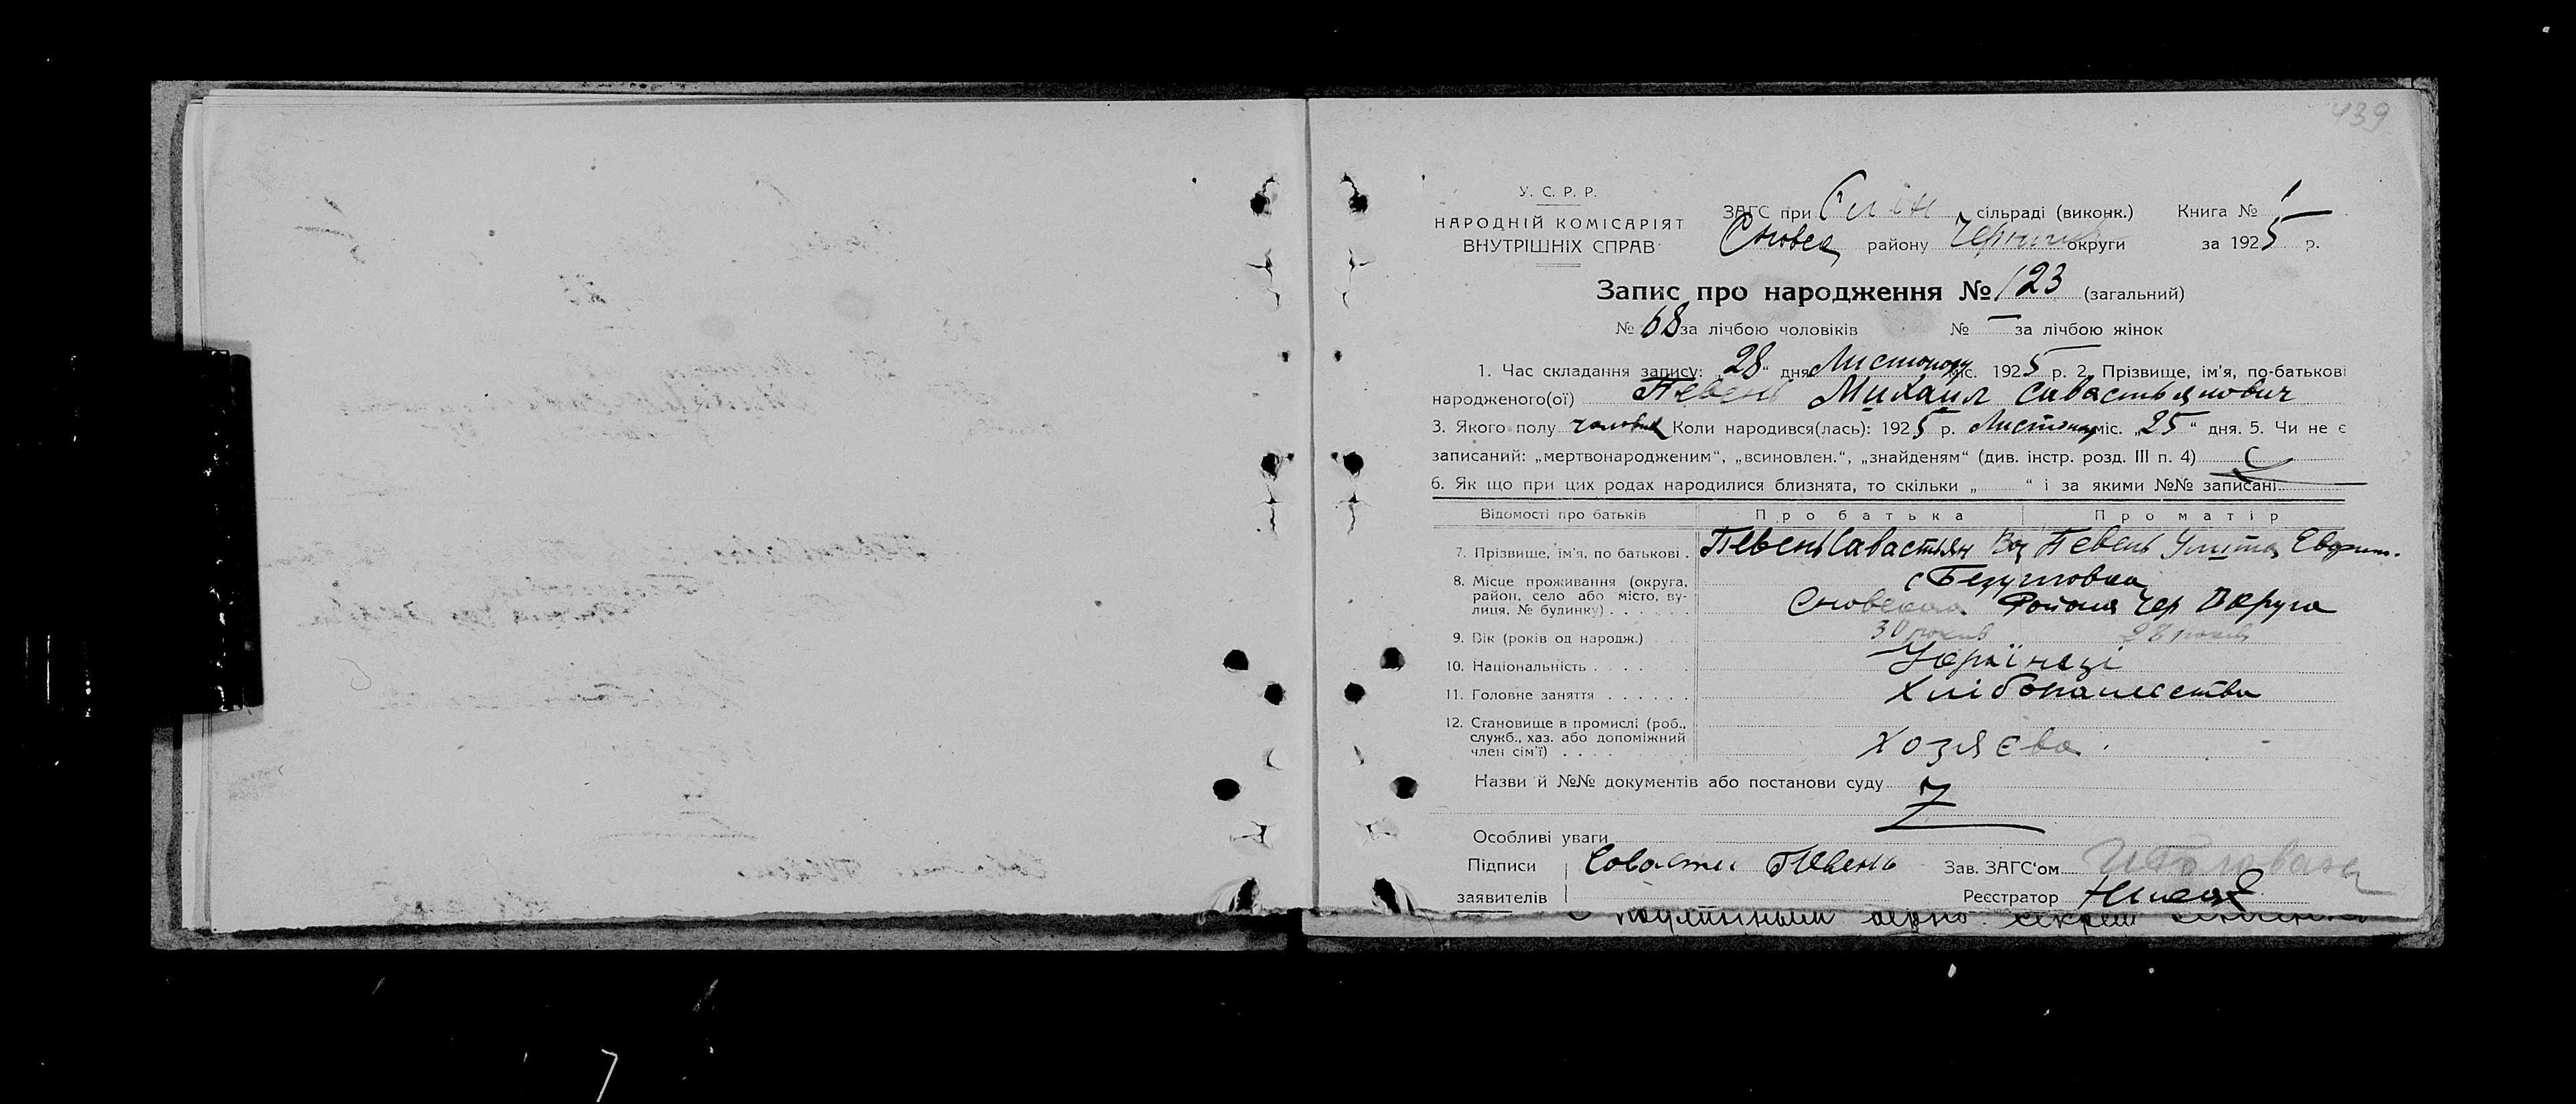 439
У. С. Р. Р.
НАРОДНІЙ КОМІСАРІЯТ
ВНУТРІШНІХ СПРАВ
ЗАГС при сільраді (виконк.) Книга № 1
Сновск району Черниг округи за 1925 р.
Запис про народження № 123 (загальний)
№ 68 за лічбою чоловіків № — за лічбою жінок
1. Час складання запису: „28“ дня Листоподу міс. 1925 р. 2. Прізвище, ім'я, по-батькові
народженого(ої) Певень Михаил Савастьянович
3. Якого полу чоловік Коли народився(лась): 1925 р. Листопад міс. „25“ дня. 5. Чи не є
записаний: „мертвонародженим“, „всиновлен.“, „знайденям“ (див. інстр. розд. III п. 4)
6. Як що при цих родах народилися близнята, то скільки „ “ і за якими №№ записані
Відомості про батьків Про батька Про матір
7. Прізвище, ім'я, по батькові . Певень Савастьян Певень Улита
8. Місце проживання (округа, район, село або місто, вулиця, № будинку) . . . . . .
Сновского Района Чер Округа
9. Вік (років од народж.) 30 років 28 років
10. Національність . . . . . Українці
11. Головне заняття . . . . . . Хлібопашество
12. Становище в промислі (роб., служб., хаз. або допоміжний член сім'ї) . . . . Хозяєва
Назви й №№ документів або постанови суду
Особливі уваги
Підписи Певень Зав. ЗАГС'ом
заявителів Реєстратор